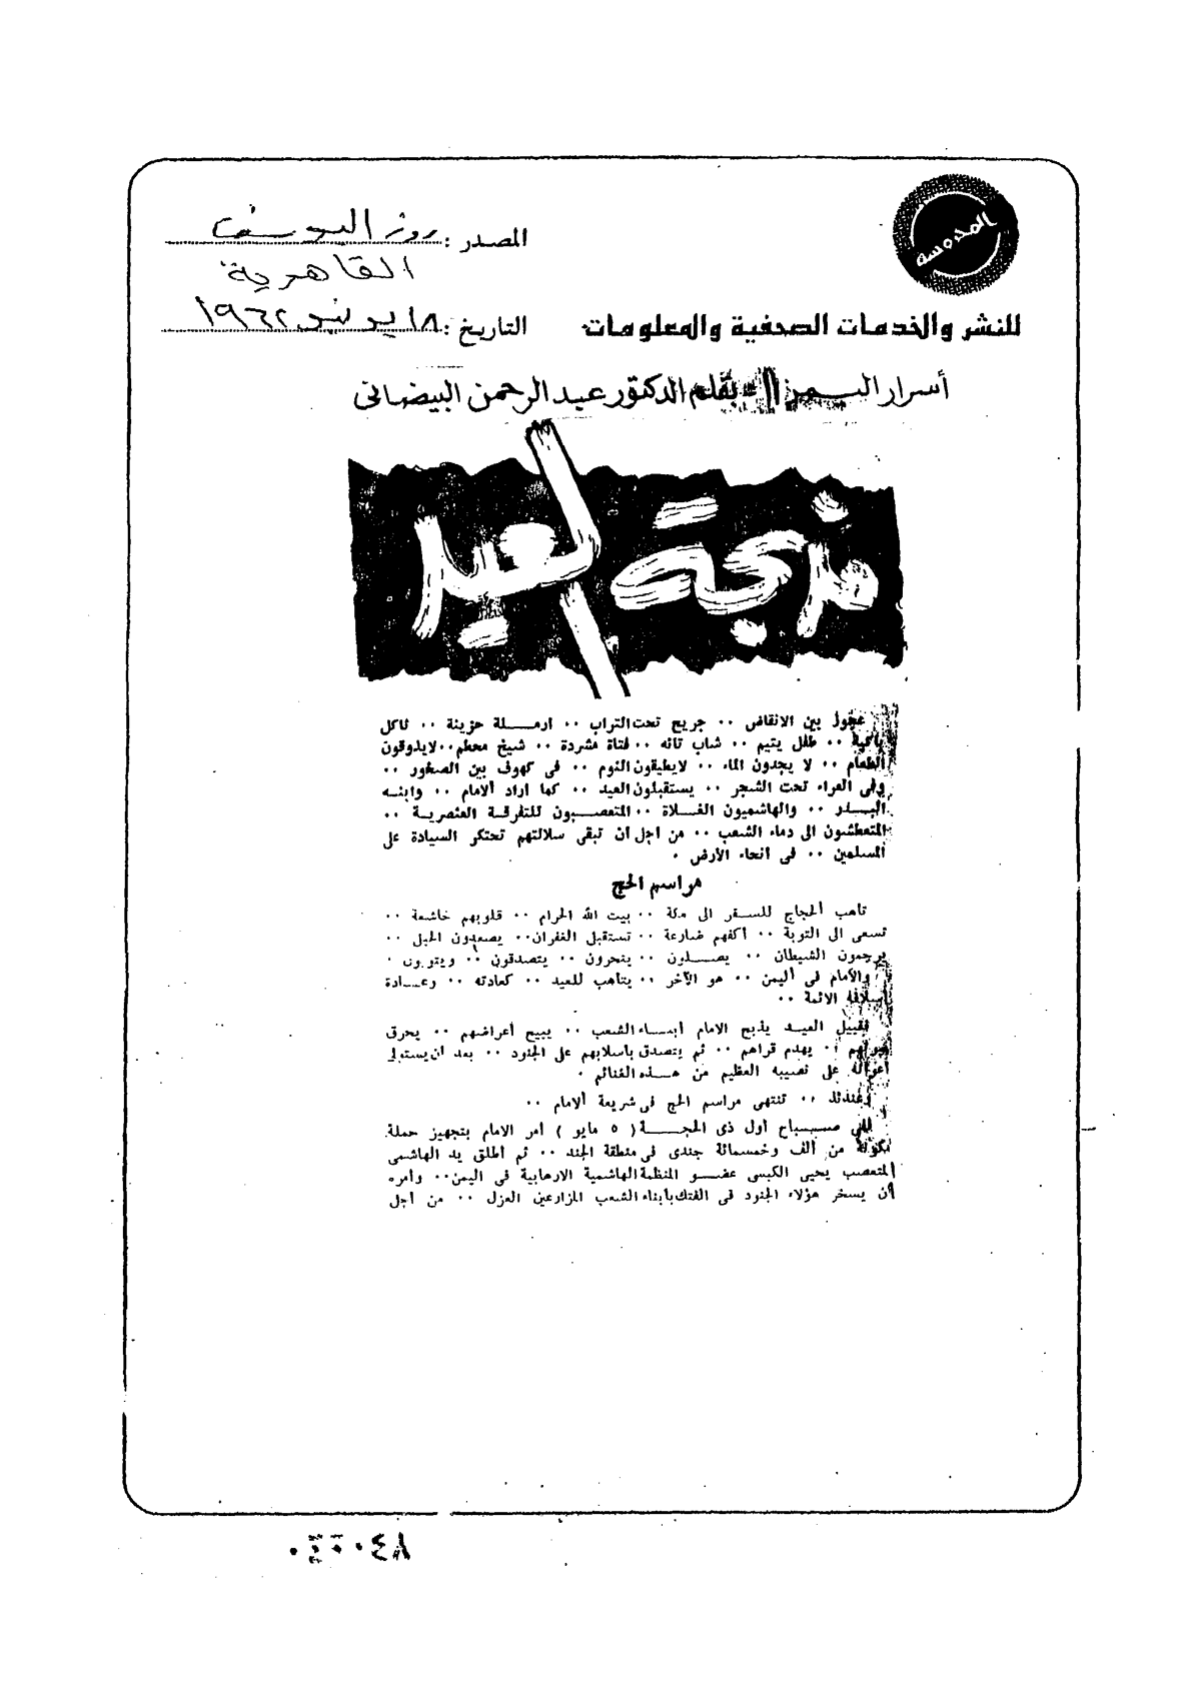 المحروسة
المصدر : روز اليوسف
القاهرية
للنشر والخدمات الصحفية والمعلومات
التاريخ : ١٨ يونيو ١٩٦٢
أسرار اليمن بقلم الدكتور عبد الرحمن البيضانى
مذبحة العيد
عجوز بين الانقاض ٠٠ جريح تحت التراب ٠٠ ارملة حزينة ٠٠ ثاكل
باكية ٠٠ طفل يتيم ٠٠ شاب تائه ٠٠ فتاة مشردة ٠٠ شيخ محطم ٠٠ لايذوقون
الطعام ٠٠ لا يجدون الماء ٠٠ لايطيقون النوم ٠٠ فى كهوف بين الصخور ٠٠
وفى العراء تحت الشجر ٠٠ يستقبلون العيد ٠٠ كما اراد الامام ٠٠ وابنه
البدر ٠٠ والهاشميون الغلاة ٠٠ المتعصبون للتفرقة العنصرية ٠٠
المتعطشون الى دماء الشعب ٠٠ من اجل أن تبقى سلالتهم تحتكر السيادة على
المسلمين ٠٠ فى انحاء الأرض ٠
مراسم الحج
تأهب الحجاج للسفر الى مكة ٠٠ بيت الله الحرام ٠٠ قلوبهم خاشعة ٠٠
تسعى الى التوبة ٠٠ أكفهم ضارعة ٠٠ تستقبل الغفران ٠٠ يصعدون الجبل ٠٠
يرجمون الشيطان ٠٠ يصلون ٠٠ ينحرون ٠٠ يتصدقون ٠٠ ويتوبون ٠
والأمام فى اليمن ٠٠ هو الآخر ٠٠ يتأهب للعيد ٠٠ كعادته ٠٠ وعادة
أسلافه الائمة ٠٠
فقبيل العيد يذبح الامام أبناء الشعب ٠٠ يبيح أعراضهم ٠٠ يحرق
٠٠ يهدم قراهم ٠٠ ثم يتصدق بأسلابهم على الجنود ٠٠ بعد أن يستولى
أعوانه على نصيبه العظيم من هذه الغنائم ٠
وعندئذ ٠٠ تنتهى مراسم الحج فى شريعة الامام ٠٠
ففى صباح أول ذى الحجة ( ٥ مايو ) أمر الامام بتجهيز حملة
مكونة من ألف وخمسمائة جندى فى منطقة الجند ٠٠ ثم أطلق يد الهاشمى
المتعصب يحيى الكبسى عضو المنظمة الهاشمية الارهابية فى اليمن ٠٠ وأمره
أن يسخر هؤلاء الجنود فى الفتك بأبناء الشعب المزارعين العزل ٠٠ من أجل